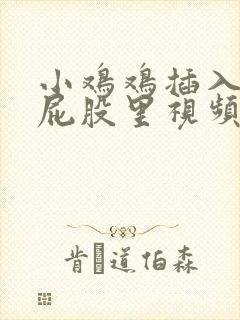 小鸡鸡插入
屁股里視頻
肯 道伯森